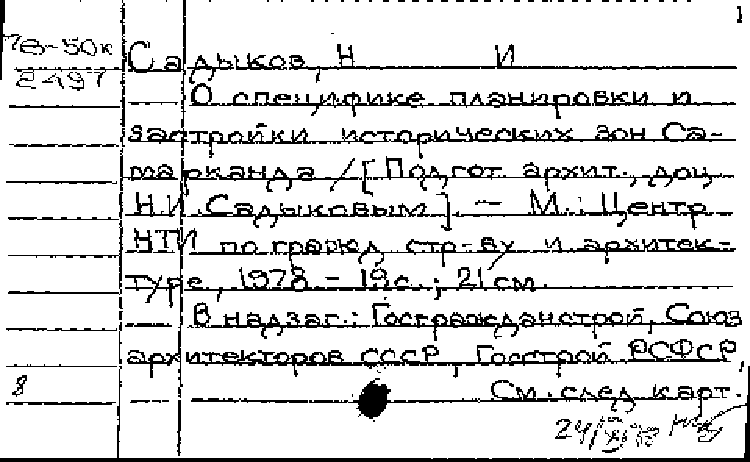 1
78-50к
2497
Садыков, Н И
О специфике планировки и
застройки исторических зон Са-
марканда / [Подгот. архит., доц.
Н.И. Садыковым]. - М.: Центр
НТИ по гражд. стр-ву и архитек-
туре, 1978. - 19с.; 21 см.
В надзаг.: Госгражданстрой, Союз
архитекторов СССР, Госстрой РСФСР,
8
См. след. карт.